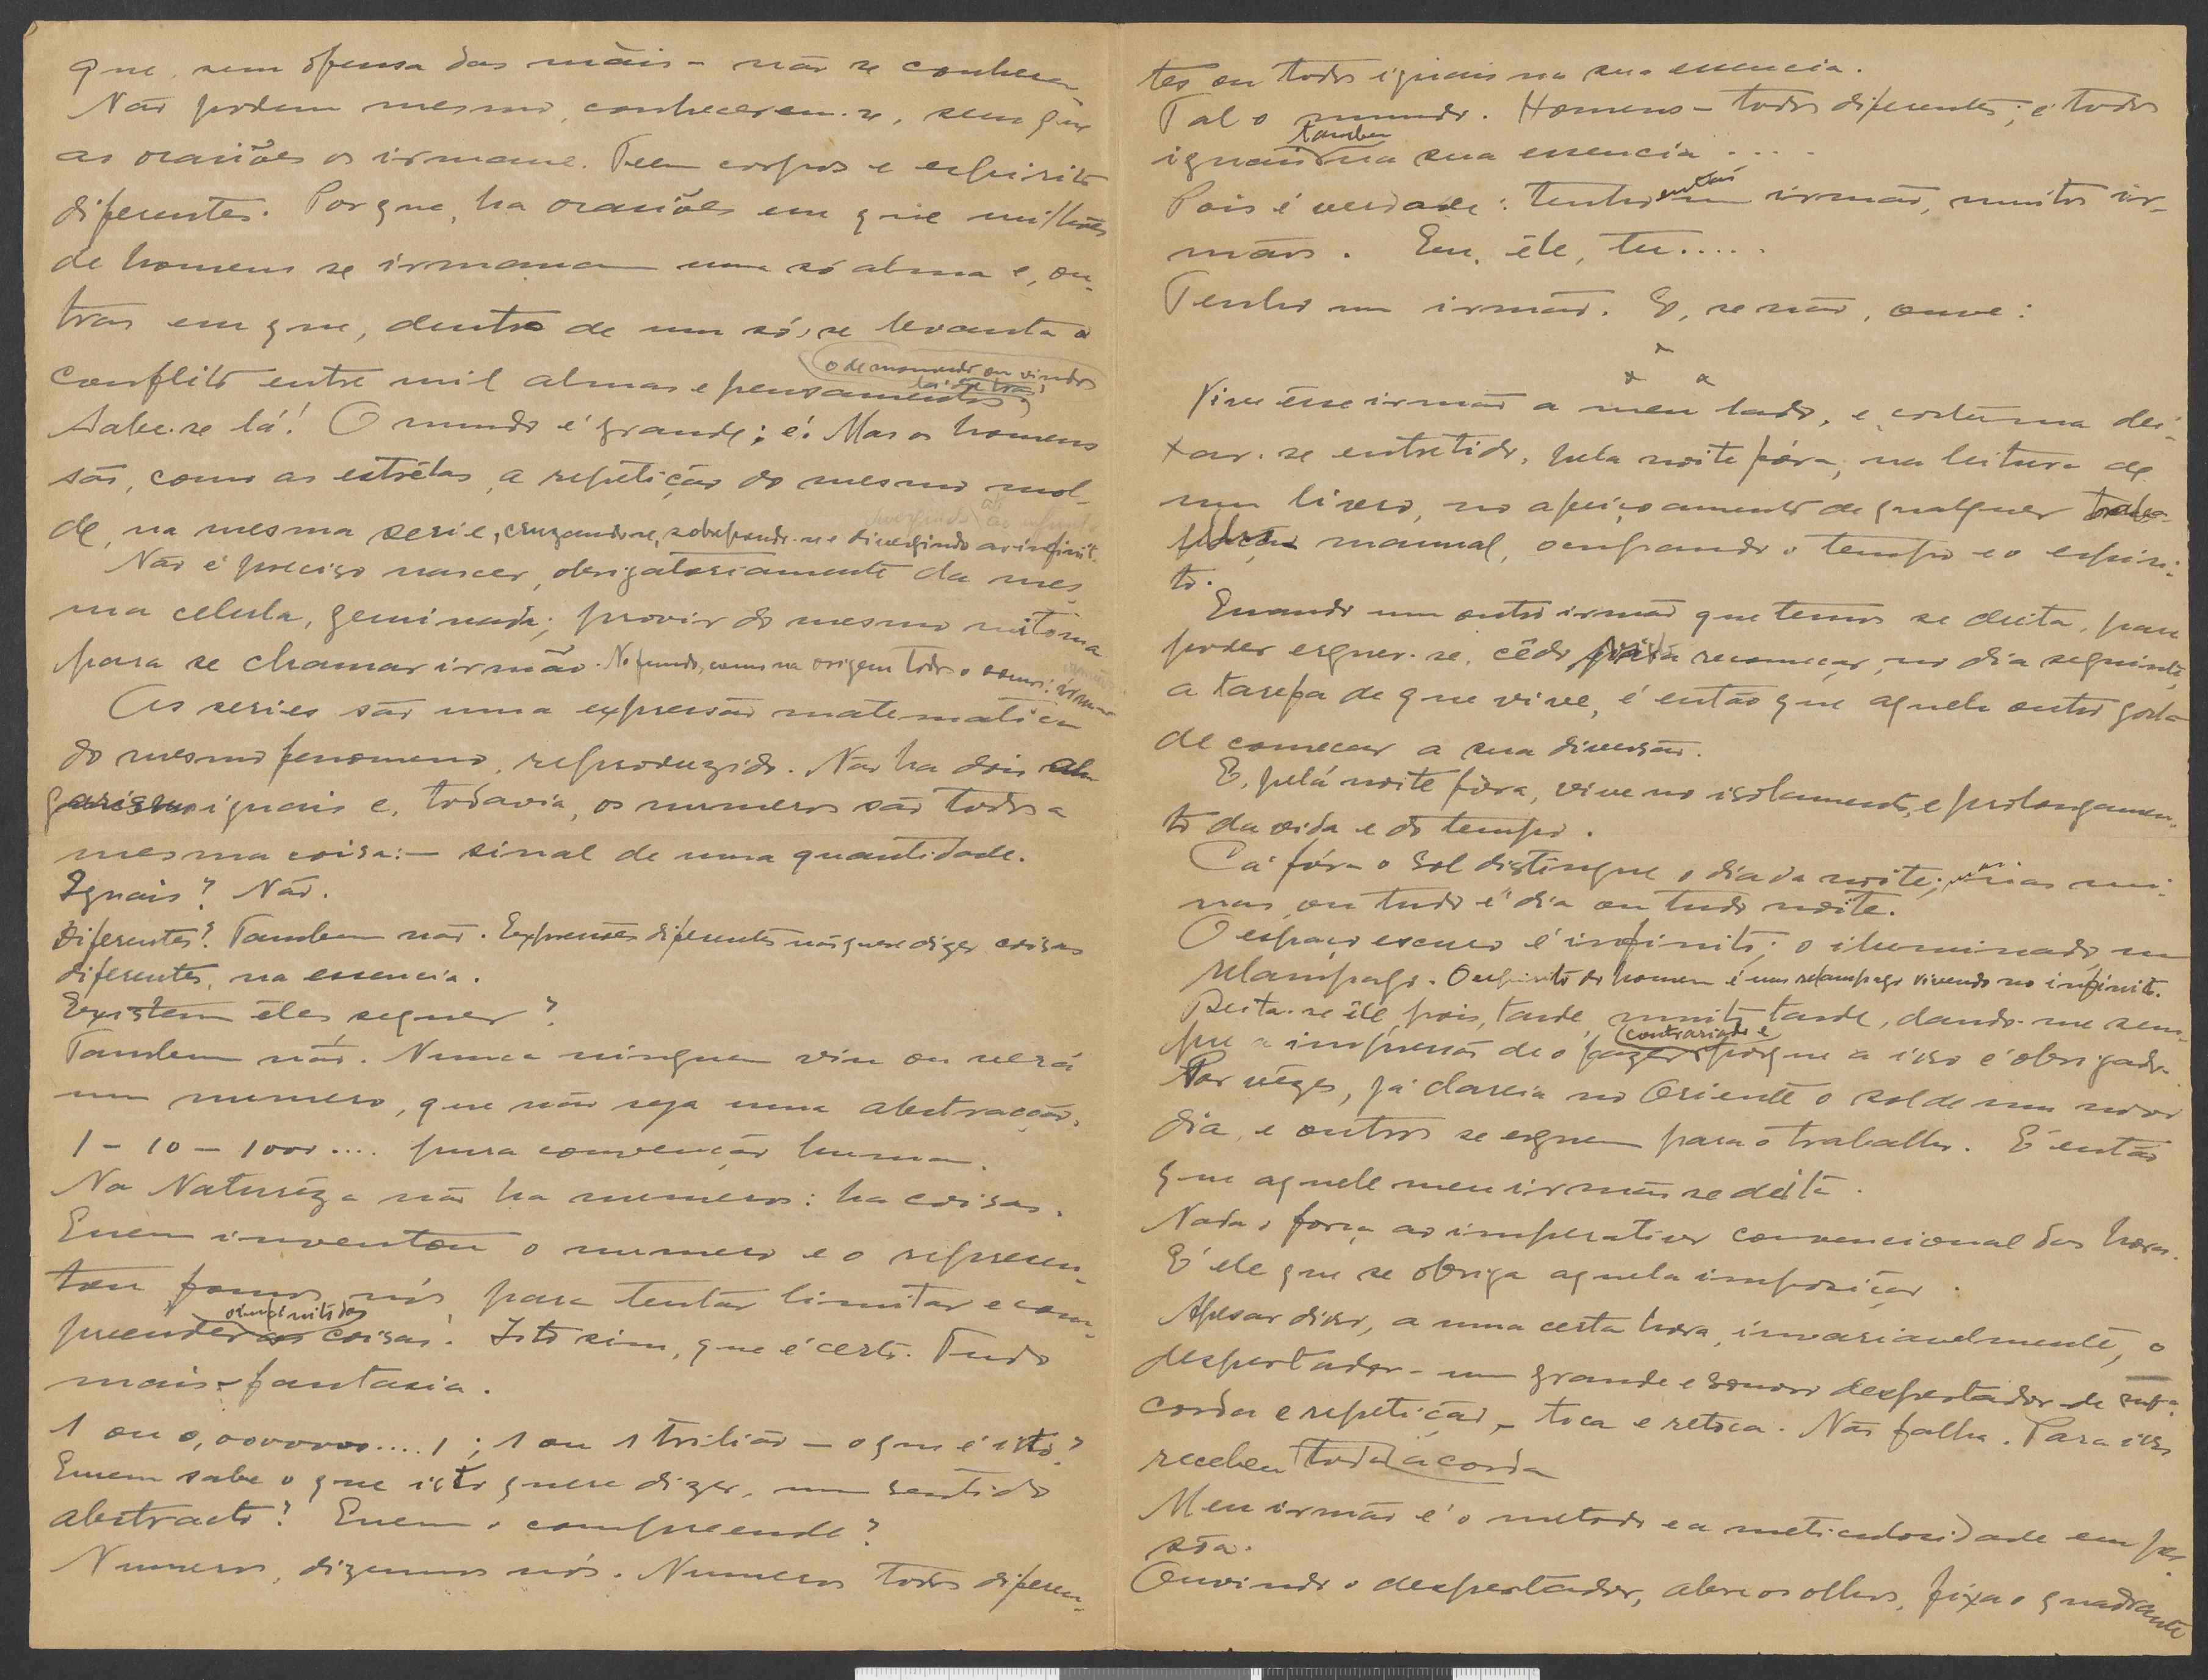 que, sem ofensa das mãis - não se conhecem
Não podem mesmo, conhecerem-se, sem que
as ocasiões os irmane. Teem corpos e espirito
diferentes. Porque, ha ocasiões em que milhões
de homens se irmanam numa só alma e, ou-
tras em que, dentro de um só, se levanta o
conflito entre mil almas e pensamentos,
o de momento ou vindos
lá de traz,
Sabe-se lá! O mundo é grande; é. Mas os homens
são, como as estrêlas, a repetição do mesmo mol-
de, na mesma serie, cruzando-se, sobrepondo-se e divergindo ao infinito.
Não é preciso nascer, obrigatoriamente da mes-
ma celula, geminada; provir do mesmo
para se chamar irmão. No fundo, como na origem todo o somos: irmãos
As series são uma expressão matematica
do mesmo fenomeno, reproduzido. Não ha dois al-
garismos iguais e, todavia, os numeros são todos a
mesma coisa: - sinal de uma quantidade.
Iguais? Não.
Diferentes? Tambem não. Expressões diferentes não quere dizer coisas
diferentes, na essencia.
Existem êles, sequer?
Tambem não. Nunca ninguem viu ou verá
um numero, que não seja uma abstracção.
1 - 10 - 1000.... pura convenção humana.
Na Naturêza não ha numeros: ha coisas.
Quem inventou o numero e o represen-
tou fomos nós, para tentar limitar e com-
preender as coisas. Isto sim, que é certo. Tudo
o infinito das
mais - fantasia.
1 ou 0,0000000....1; 1 ou 1 trilião - o que é isto?
Quem sabe o que isto quere dizer, num sentido
abstracto? Quem o compreende?
Numeros, dizemos nós. Numeros todos diferen-
tes ou todos iguais na sua essencia.
Tal o mundo. Homens - todos diferentes; e todos
iguais na sua essencia....
tambem
Pois é verdade: tenho um irmão, muitos ir-
então
mãos. Eu, êle, tu.....
Tenho um irmão. E, se não, ouve:
x
x x
Vive êsse irmão a meu lado, e costuma dei-
xar-se entretido, pela noite fóra, na leitura de
um livro, no apeiçoamento de qualquer
manual, ocupando o tempo e o espiri-
to.
Quando um outro irmão que temos se deita, para
poder erguer-se, cêdo para recomeçar, no dia seguinte,
a tarefa de que vive, é então que aquele outro gosta
de começar a sua diversão.
E, pela noite fóra, vive no isolamento, e prolongamen-
to da vida e do tempo.
Cá fóra o sol distingue o dia da noite; nas mi-
nas, ou tudo é dia ou tudo noite.
O espaço escuro é infinito; o iluminado, um
relampago. O espirito do homem é um relampago vivendo no infinito.
Deita-se êle, pois, tarde, muito tarde, dando-me sem-
pre a impressão de o fazer porque a isso é obrigado.
contrariado e
Por vêzes, já clareia no Oriente o sol de um novo
dia, e outros se erguem para o trabalho. É então
que aquele meu irmão se deita.
Nada o força ao imperativo convencional das horas.
É êle que se obriga aquela imposição.
Apesar disso, a uma certa hora, invariavelmente, o
despertador - um grande e sonoro despertador de
corda e repetição, - toca e retoca. Não falha. Para isso
recebeu toda a corda
Meu irmão é o metodo e a meticulosidade em pes-
sôa.
Ouvindo o despertador, abre os olhos, fixa o quadrante